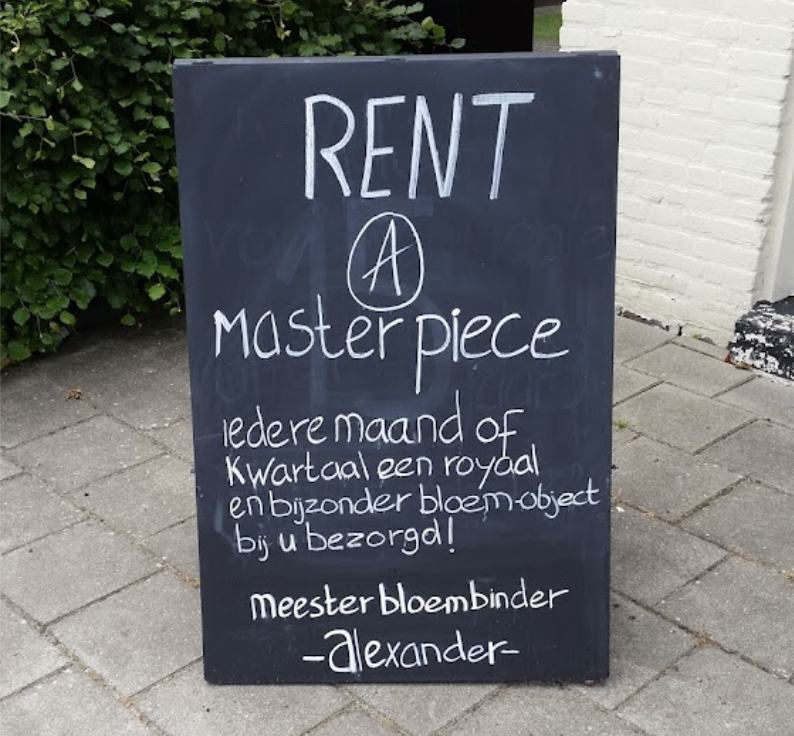 RENT
A
Masterpiece
iedere maand of
Kwartaal een royaal
en bijzonder bloem-object
bij u bezorgd!
meesterbloembinder
-alexander-